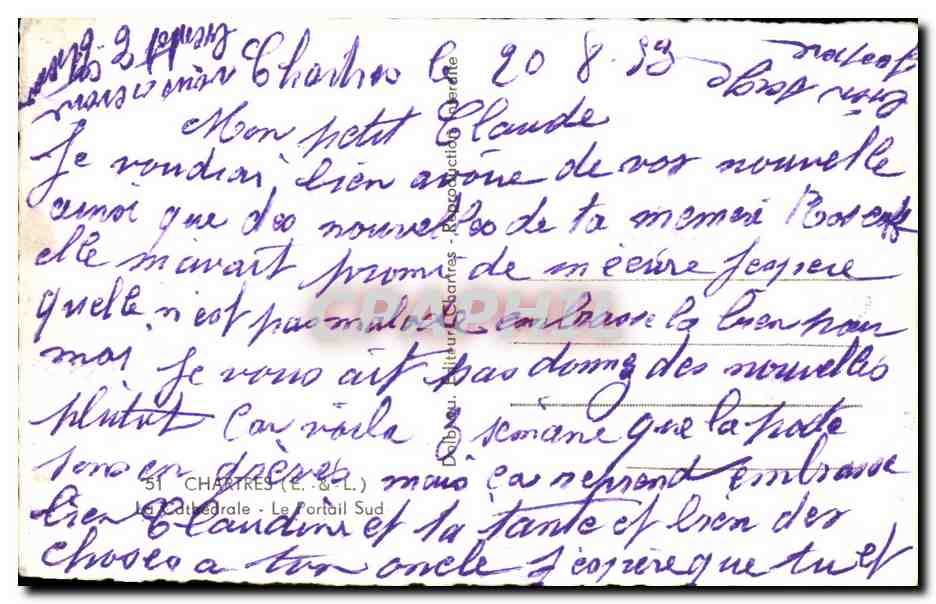 Chartres le 20 8. 53
Mon petit Claude
Je voudrai bien avoire de vos nouvelle
ainsi que des nouvelles de ta memere
elle m'avait promi de m'écrire j'espere
quelle n'est pas malade embrasse la bien pour
moi je vous ait pas donné des nouvelles
plutot car voila 3 semaine que la poste
sons en grèves mais ca reprend embrasse
bien Claudine et ta tante et bien des
choses a ton oncle j'espère que tu et
51 CHARTRES (E. & L.)
La Cathédrale - Le Portail Sud
Editeur Chartres - Reproduction interdite
CPAPHIL